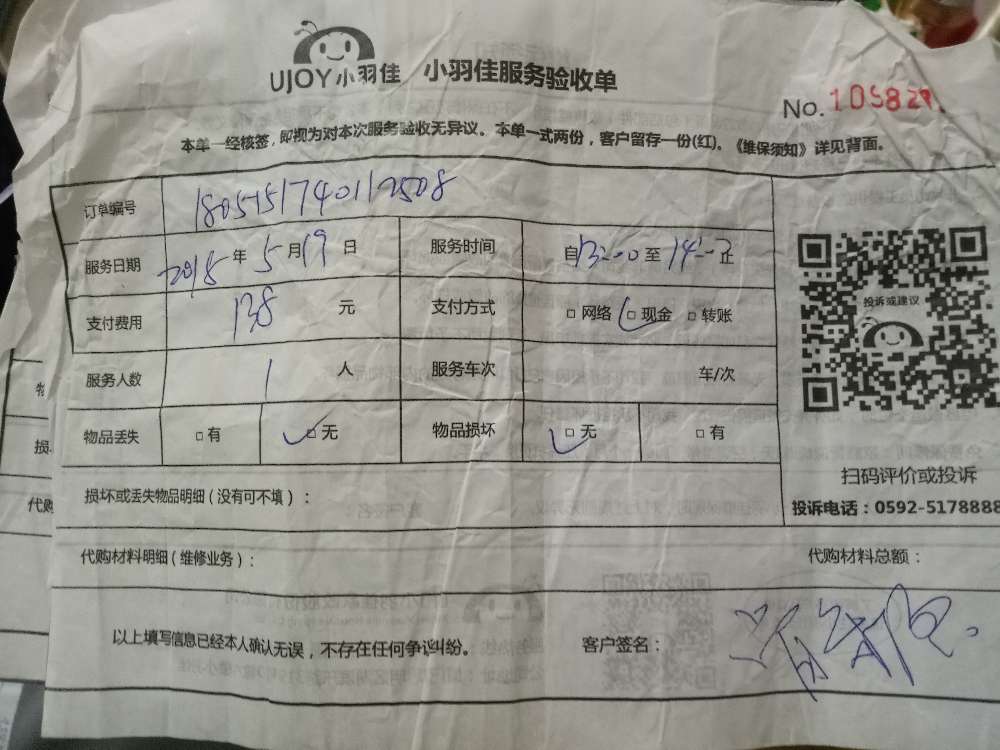 UJOY小羽佳 小羽佳服务验收单
No. 105829
本单一经核签，即视为对本次服务验收无异议。本单一式两份，客户留存一份(红)。《维保须知》详见背面。
订单编号 1805151740112508
服务日期 2018 年 5 月 19 日 服务时间 自 13:00 至 14:00 止
支付费用 138 元 支付方式 □ 网络 □ 现金 □ 转账
服务人数 1 人 服务车次 车/次
物品丢失 □ 有 □ 无 物品损坏 □ 无 □ 有
损坏或丢失物品明细（没有可不填）：
投诉或建议
扫码评价或投诉
投诉电话：0592-5178888
代购材料明细（维修业务）： 代购材料总额：
以上填写信息已经本人确认无误，不存在任何争议纠纷。 客户签名：